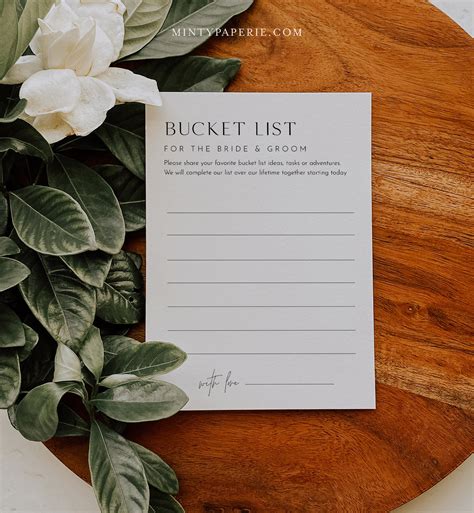 MINTYPAPERIE.COM
BUCKET LIST
FOR THE BRIDE & GROOM
Please share your favorite bucket list ideas, tasks or adventures.
We will complete our list over our lifetime together starting today
with love